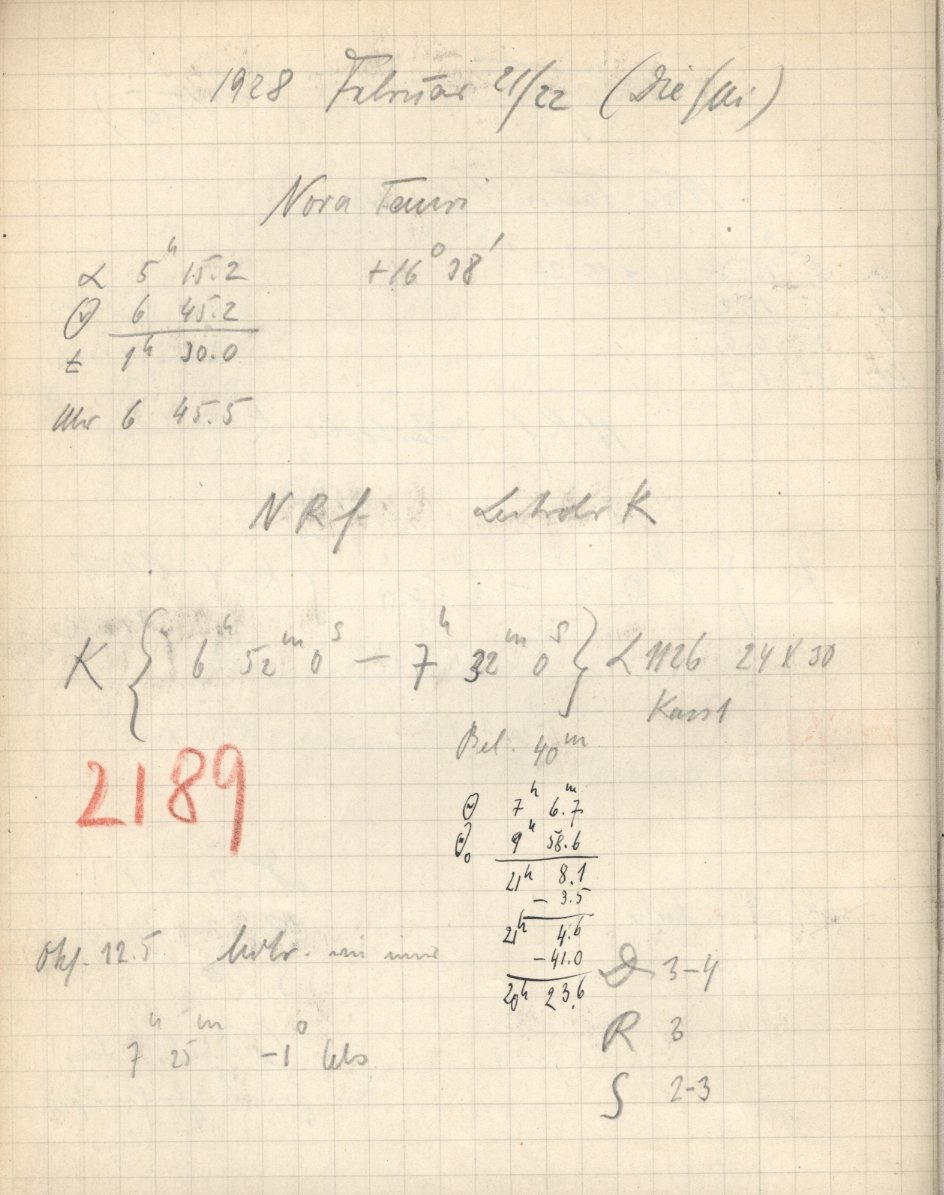 1928 Februar 21/22 (Die/Mi)
Nova Tauri
α 5h 15.2 +16° 38'
Θ 6 45.2
t 1h 30.0
Uhr 6 45.5
N R f. Leitrohr K
K { 6h 52m 0s — 7h 32m 0s } L 1126 24 x 30
Kass 1
Bel. 40m
2189
Θ 7h 6.7m
Θ₀ 9h 58.6
21h 8.1
- 3.5
21h 4.6
-41.0
20h 23.6
Okf. 12.5
D 3-4
7h 25m -1°
R 3
S 2-3